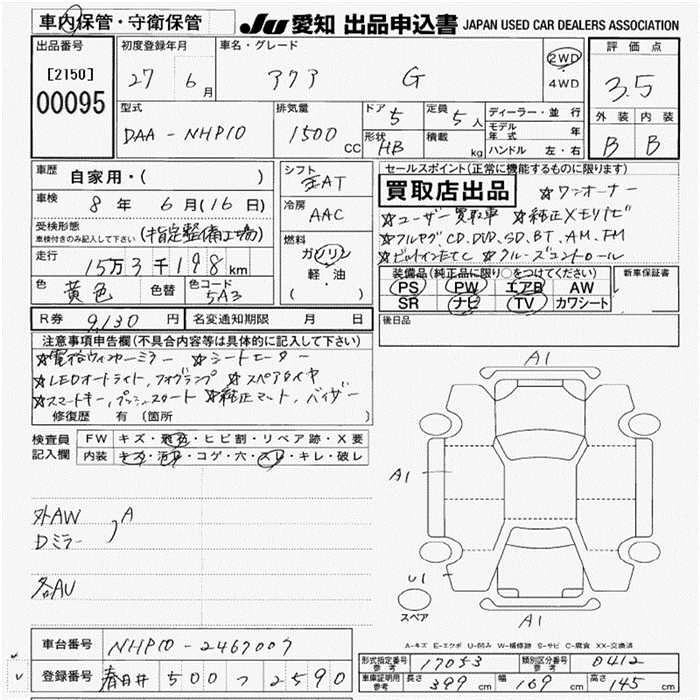 車内保管・守衛保管
JU 愛知 出品申込書 JAPAN USED CAR DEALERS ASSOCIATION
出品番号 初度登録年月 車名・グレード 2WD 評価点
[2150] 27 6月 アクア G 4WD 3.5
00095
型式 排気量 ドア 5 定員 5人 ディーラー・並行 外装 内装
DAA-NHP10 1500 CC 形状 HB 積載 kg モデル年式 年 B B
ハンドル 左・右
車歴 自家用・( ) シフト セールスポイント(正常に機能するものに限ります)
AT 買取店出品 ☆ワンオーナー
車検 8年 6月(16日) 冷房 AAC ☆ユーザー買取車 ☆純正メモリナビ
受検形態 車検付きのみ記入して下さい (指定整備工場) ☆フルセグ,CD,DVD,SD,BT,AM,FM
走行 15万3千198km 燃料 ガソリン ☆ビルトインETC ☆クルーズコントロール
軽・油
( )
装備品(純正品に限り○をつけてください) 新車保証書
色 黄色 色替 色コード 5A3 PS PW エアB AW
SR ナビ TV カワシート
R券 9,130円 名変通知期限 月 日 後日品
注意事項申告欄(不具合内容等は具体的に記入して下さい)
☆電格ウィンカーミラー ☆シートヒーター
☆LEDオートライト,フォグランプ ☆スペアタイヤ
☆スマートキー,プッシュスタート ☆純正マット,バイザー
修復歴 有(箇所
検査員 FW キズ・飛石・ヒビ割・リペア跡・X要
記入欄 内装 キズ・汚れ・コゲ・穴・スレ・キレ・破レ
A1
A1
外AW
Dミラー
A
各AU
U1
スペア
A1
A-キズ E-エクボ U-凹み W-補修跡 S-サビ C-腐食 XX-交換済
車台番号 NHP10-2467007
登録番号 春日井 500 つ 2590
形式指定番号 参考 17053 類別区分番号 参考 0412
車庫証明用 参考 長さ 399cm 幅 169cm 高さ 145cm